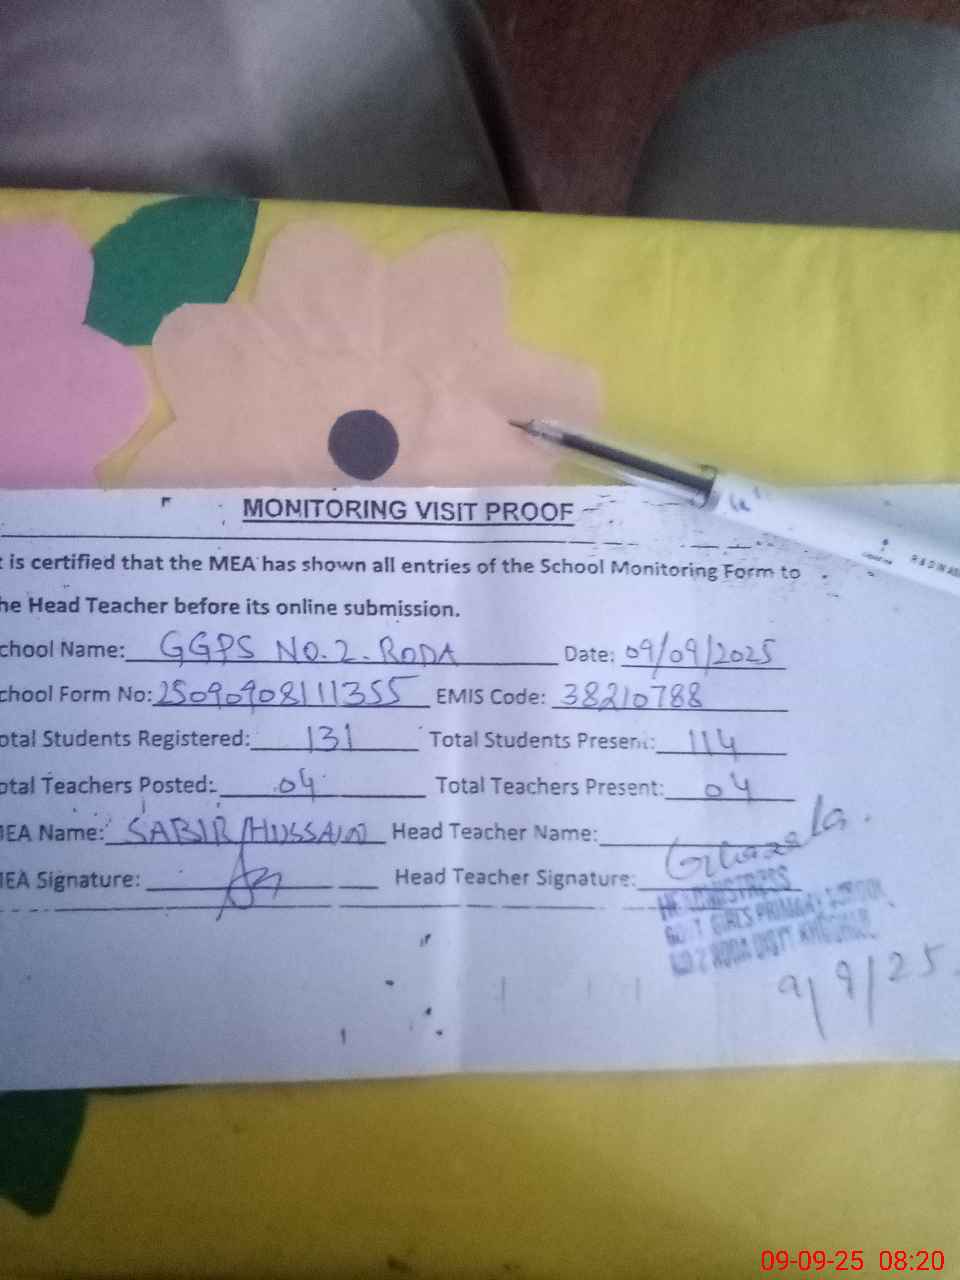 MONITORING VISIT PROOF
t is certified that the MEA has shown all entries of the School Monitoring Form to
he Head Teacher before its online submission.
chool Name: GGPS NO.2. RODA Date: 09/09/2025
chool Form No: 25090908111355 EMIS Code: 38210788
otal Students Registered: 131 Total Students Present: 114
otal Teachers Posted: 04 Total Teachers Present: 04
MEA Name: SABIR HUSSAIN Head Teacher Name:
MEA Signature: Head Teacher Signature: Ghazala.
HEADMISTRESS
GOVT GIRLS PRIMARY SCHOOL
NO 2 RODA DISTT KHUSHAB
9/9/25.
09-09-25 08:20